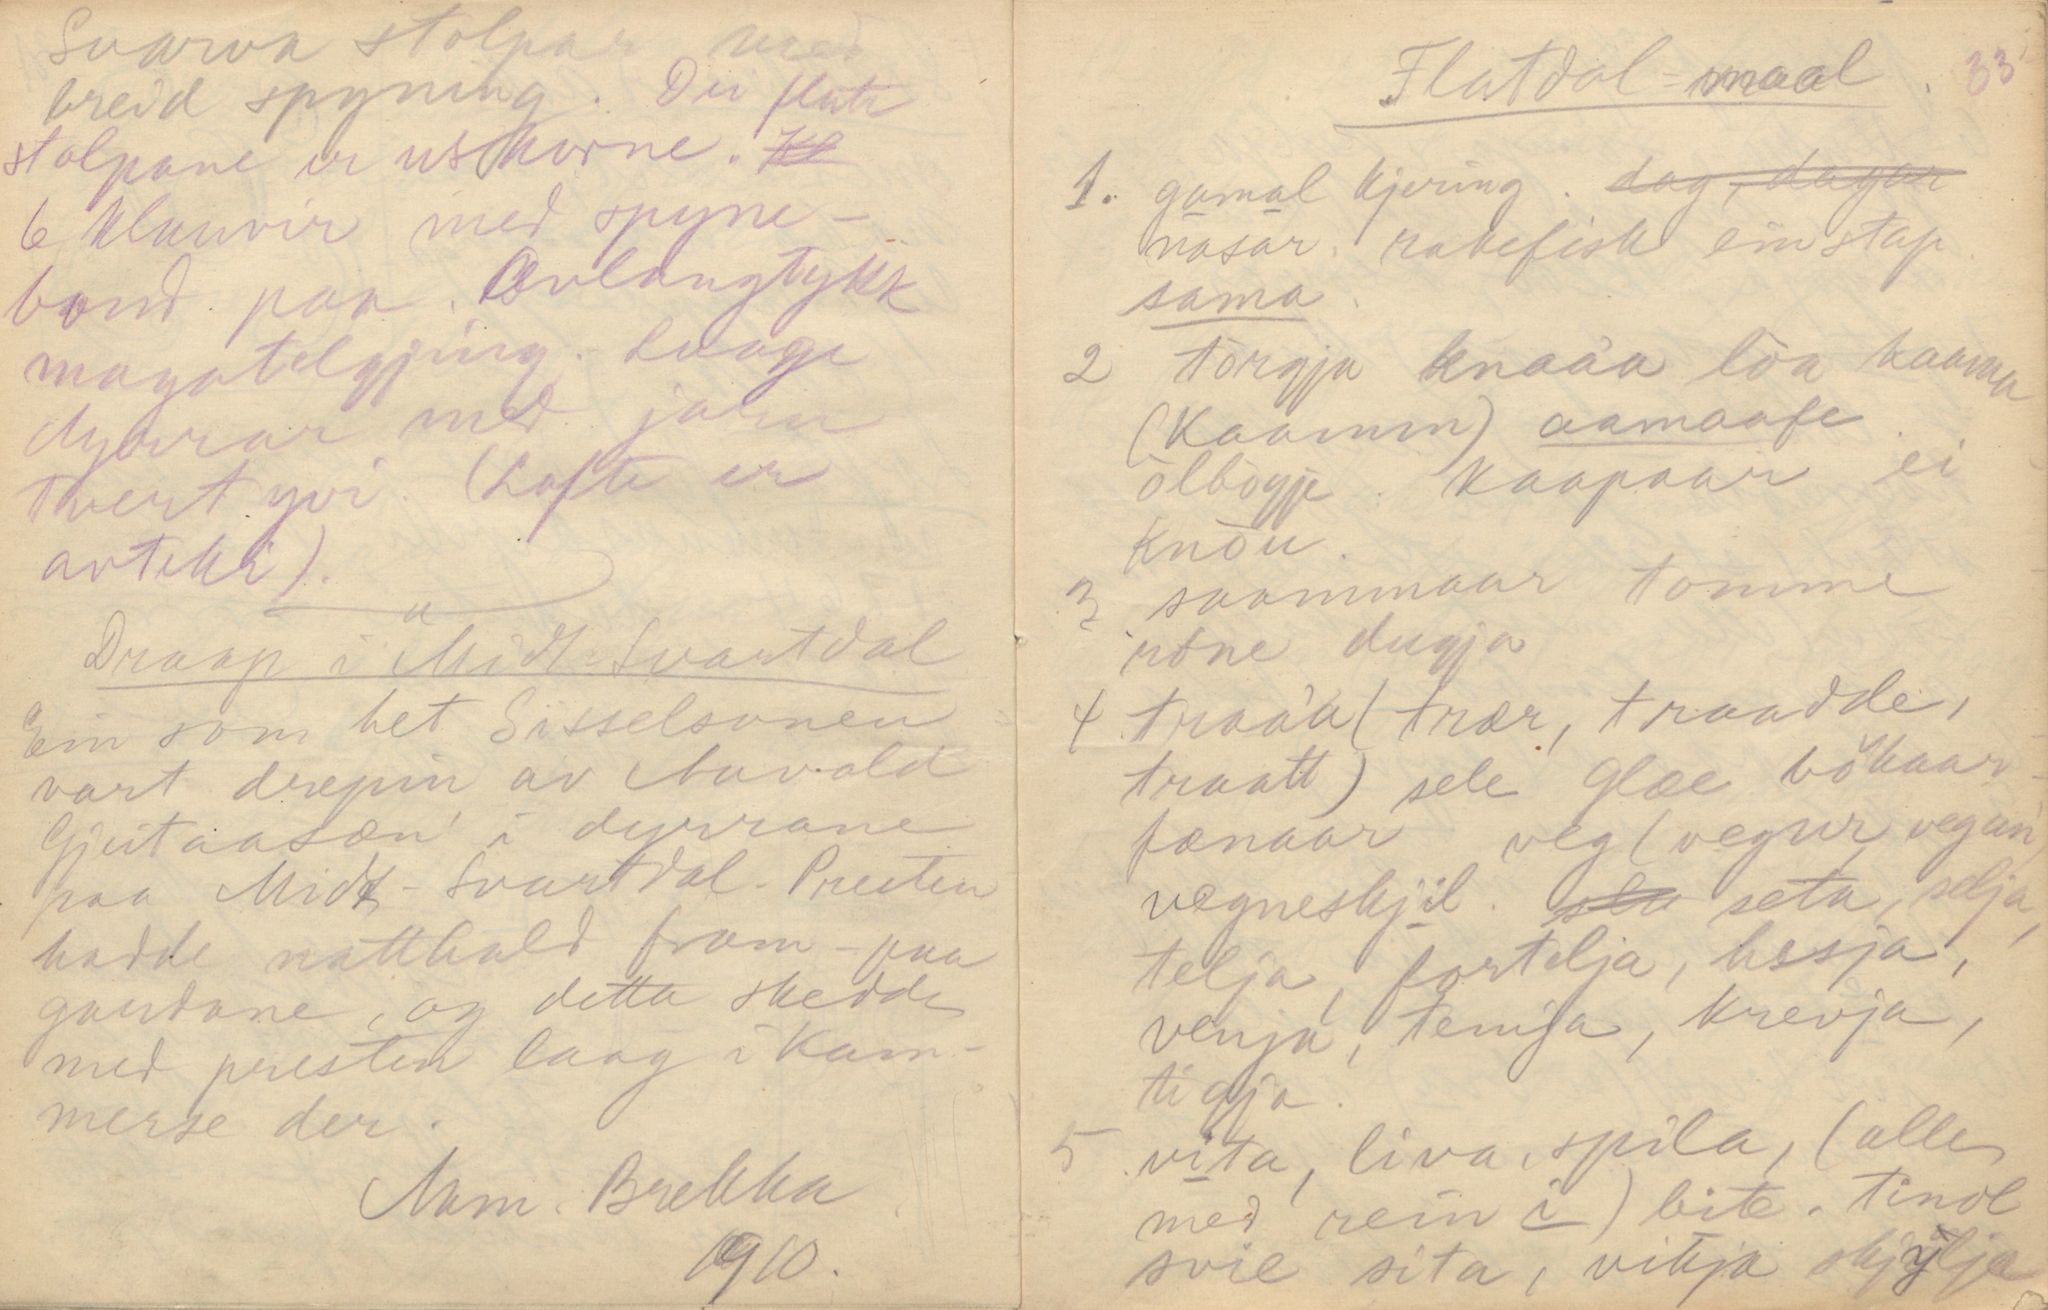 Svarva stolpar med
breid spyning. Dei flate
stolpane er utskorne. Kl
6 klauvir med spyne-
bond paa. Avlangtykk
magatelgjing. Laage
dyrrar med jarn
tvert yvi. (Lofte er
avteki).
Draap i Midt-Svartdal
Ein som het Sisselsonen
vart drepin av Auvald
Gjeitaasæn i dyrrane
paa Midt-Svartdal. Presten
hadde natthald fram-paa
gardane, og detta skedde
med presten laag i kam-
merse der.
Aam. Brekka
1910.
Flatdal-maal. 33
1. gamal kjering. dag, dagar
nasar. rakefisk einstap
sama.
2 torgja knaaa loa haama
(kaamm) aamaafe
olbogje. kaapaar ei
knou.
3 saammaar tomme
rone dugja
4 traaa (trær, traadde,
traatt) sele glæ bökaar-
fænaar veg (vegur, vegain)
vegneskjil. sla seta, selja,
telja, fortelja, hesja,
venja, temja, krevja,
tigja.
5 vita, liva, spila, (alle
med rein i) bite. tindl
svie sita, vikja skjylja